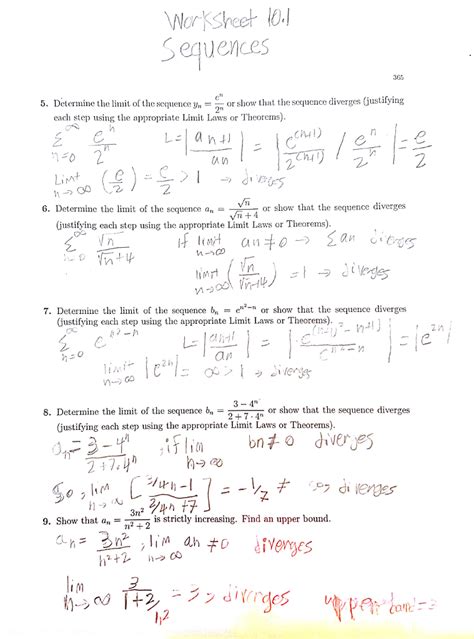 Worksheet 10.1
Sequences
365
5. Determine the limit of the sequence yₙ = eⁿ/2ⁿ or show that the sequence diverges (justifying
each step using the appropriate Limit Laws or Theorems).
∞ Σ n=0 eⁿ/2ⁿ L=|aₙ₊₁/aₙ| = |e⁽ⁿ⁺¹⁾/2⁽ⁿ⁺¹⁾ / eⁿ/2ⁿ| = e/2
Limit n→∞ (e/2) = e/2 > 1 → diverges
6. Determine the limit of the sequence aₙ = √n/√n + 4 or show that the sequence diverges
(justifying each step using the appropriate Limit Laws or Theorems).
∞ Σ √n/√n+4 if limit n→∞ an ≠ 0 → Σan diverges
limit n→∞ (√n/√n+4) = 1 → diverges
7. Determine the limit of the sequence bₙ = eⁿ²⁻ⁿ or show that the sequence diverges
(justifying each step using the appropriate Limit Laws or Theorems).
∞ Σ n=0 eⁿ²⁻ⁿ L=|an+1/an| = = |e²ⁿ|
limit n→∞ |e²ⁿ| = ∞ > 1 → diverges
8. Determine the limit of the sequence bₙ = 3 − 4ⁿ/2 + 7 · 4ⁿ or show that the sequence diverges
(justifying each step using the appropriate Limit Laws or Theorems).
aₙ = 3-4ⁿ/2+7.4ⁿ ; if lim n→∞ bn ≠ 0 diverges
So, lim n→∞ [3/4n -1 / 2/4n +7] = -1/7 ≠ diverges
9. Show that aₙ = 3n²/n² + 2 is strictly increasing. Find an upper bound.
aₙ = 3n²/n²+2 ; lim n→∞ an ≠ 0 diverges
lim n→∞ 3/1+2/n² = 3 → diverges upper bound = 3